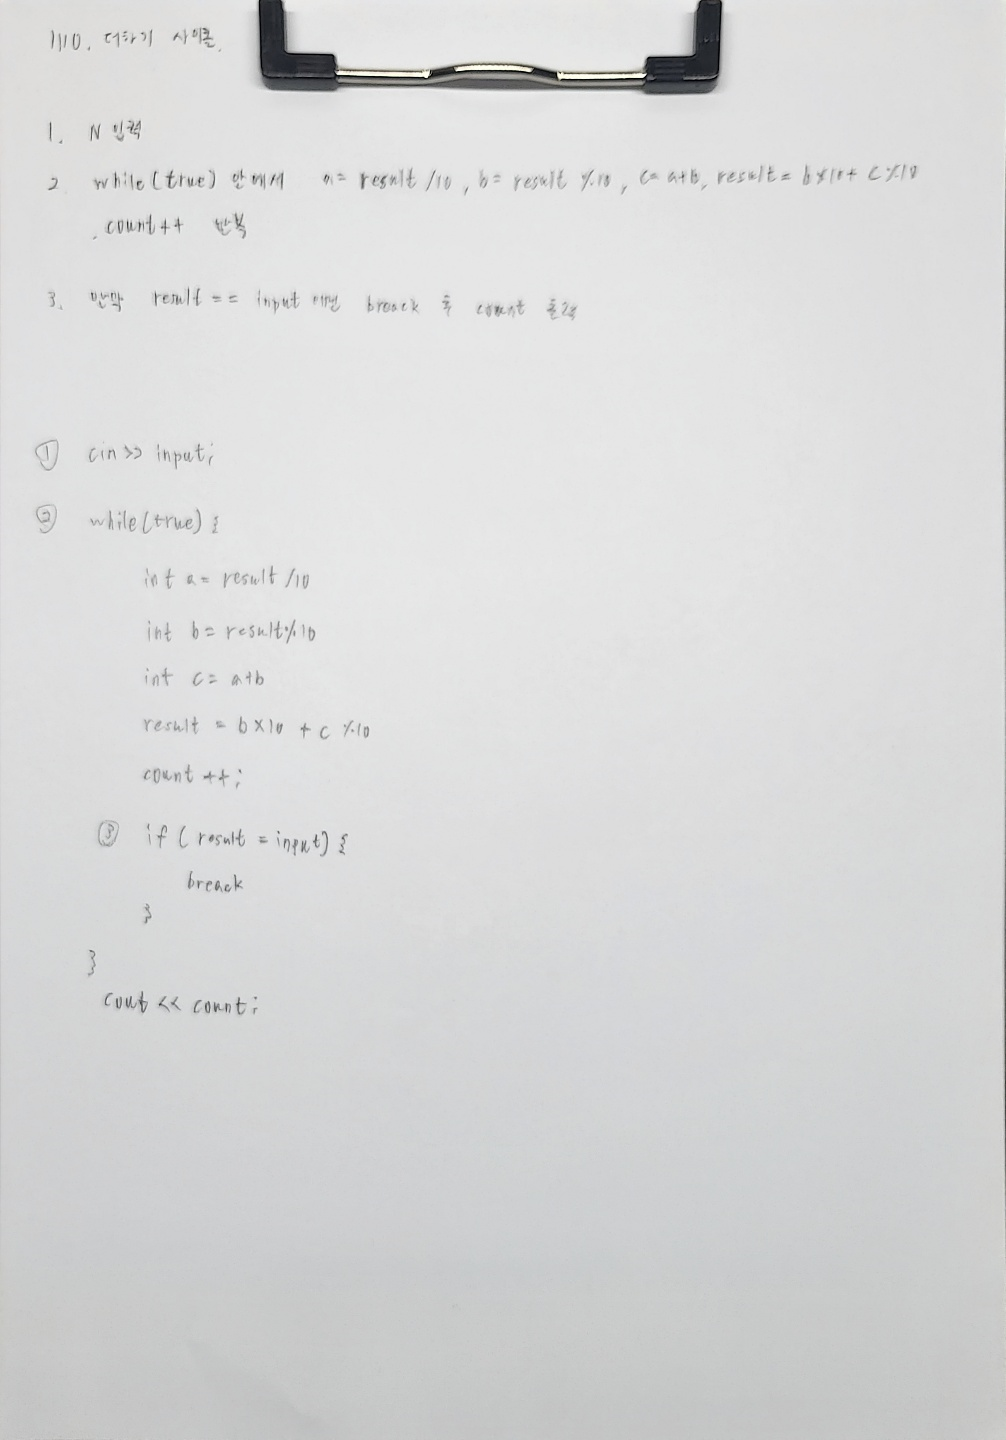 1110. 더하기 사이클.
1. N 입력
2. while(true) 안에서 a= result /10, b= result %10, c= a+b, result= b×10+ c%10
. count++ 반복
3. 만약 result == input 이면 breack 후 count 출력
① cin>> input;
② while(true) {
int a= result /10
int b= result%10
int c= a+b
result = b×10 + c %10
count ++;
③ if ( result = input) {
breack
}
}
cout << count;